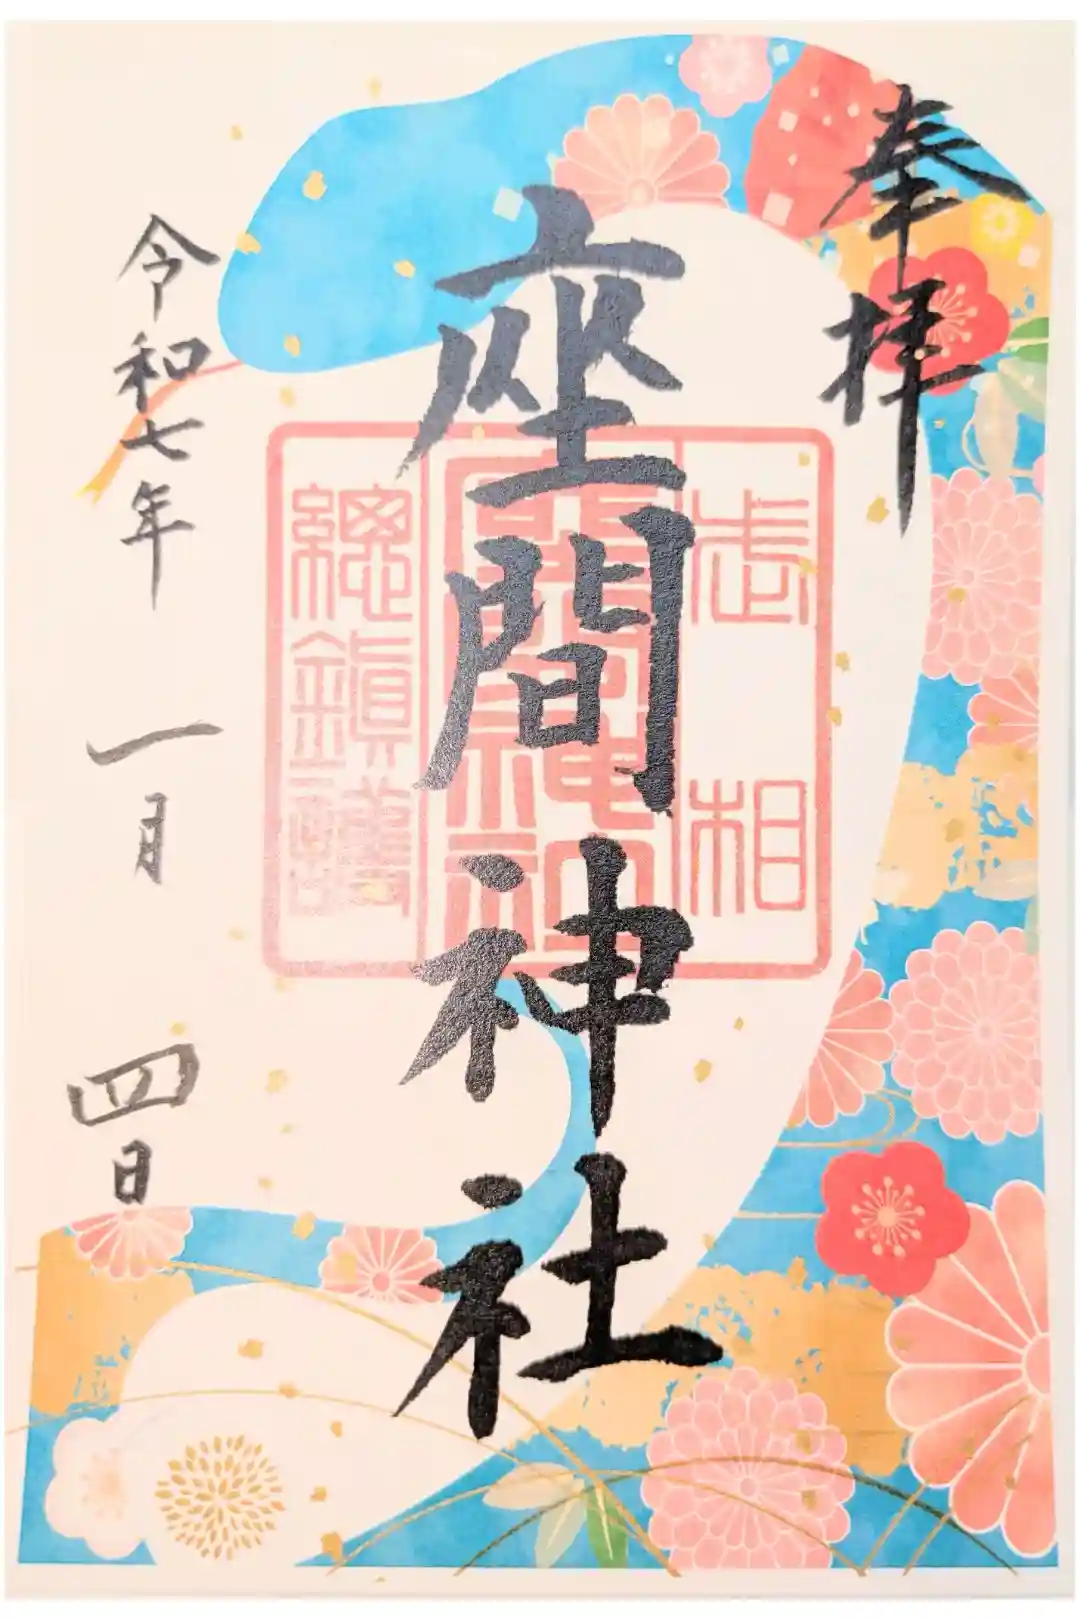 奉拝
座間神社
令和七年 一月 四日
相武
總鎮護
座間神社